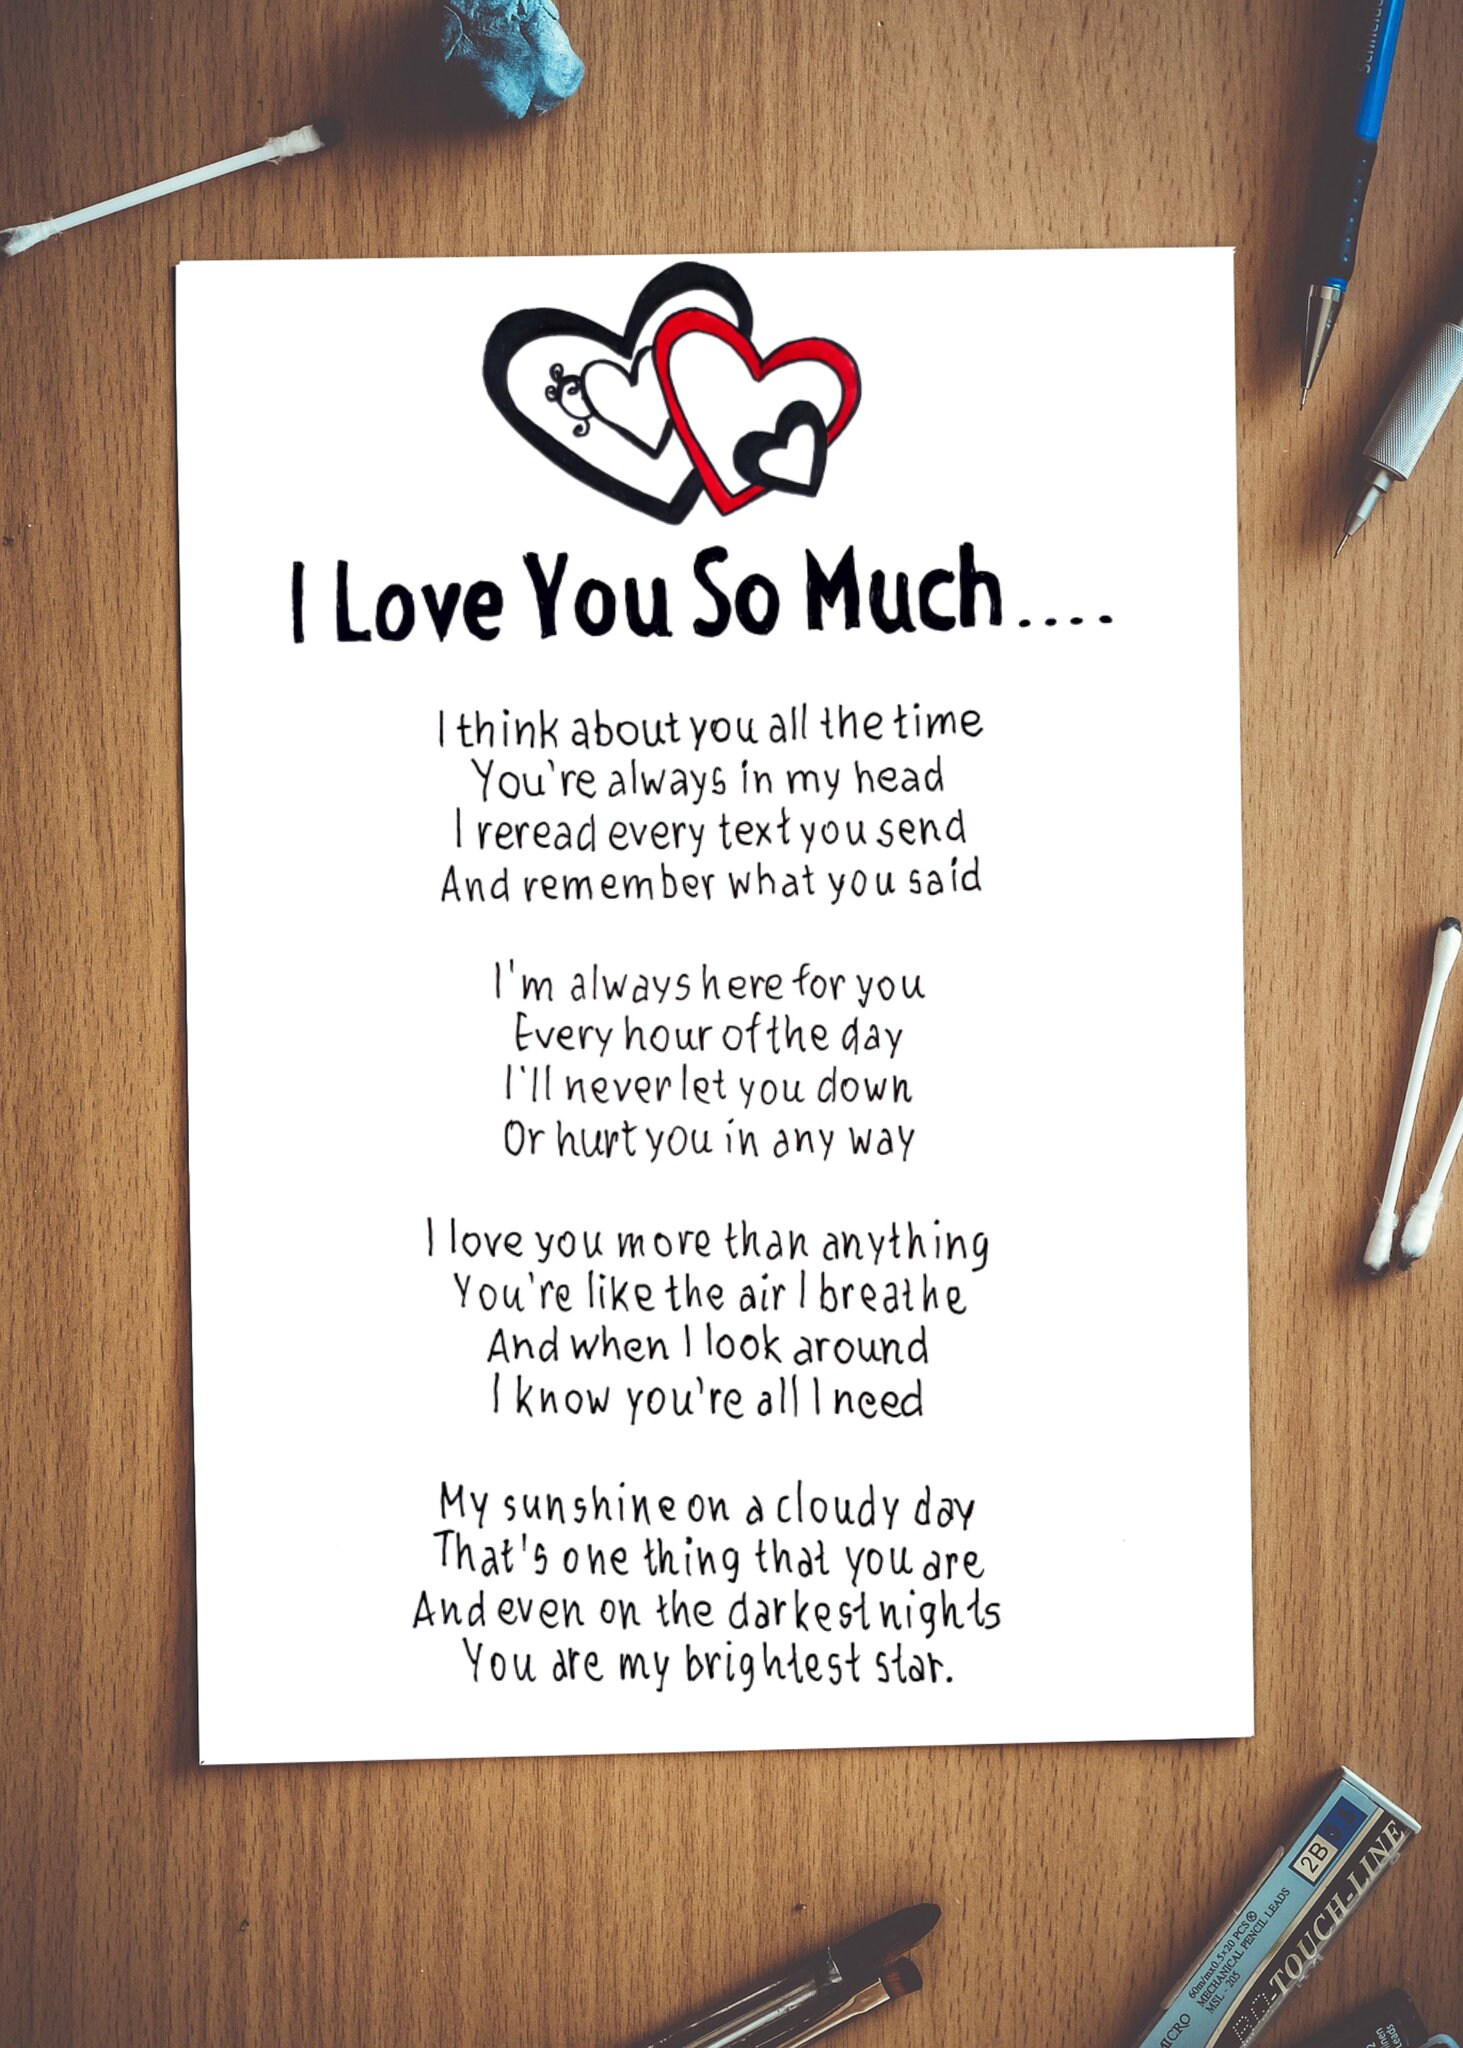 I Love You So Much....
I think about you all the time
You're always in my head
I reread every text you send
And remember what you said
I'm always here for you
Every hour of the day
I'll never let you down
Or hurt you in any way
I love you more than anything
You're like the air I breathe
And when I look around
I know you're all I need
My sunshine on a cloudy day
That's one thing that you are
And even on the darkest nights
You are my brightest star.
2B
60m/mx0.5x20 PCS®
MECHANICAL PENCIL LEADS
MSL - 205
TOUCH-LINE